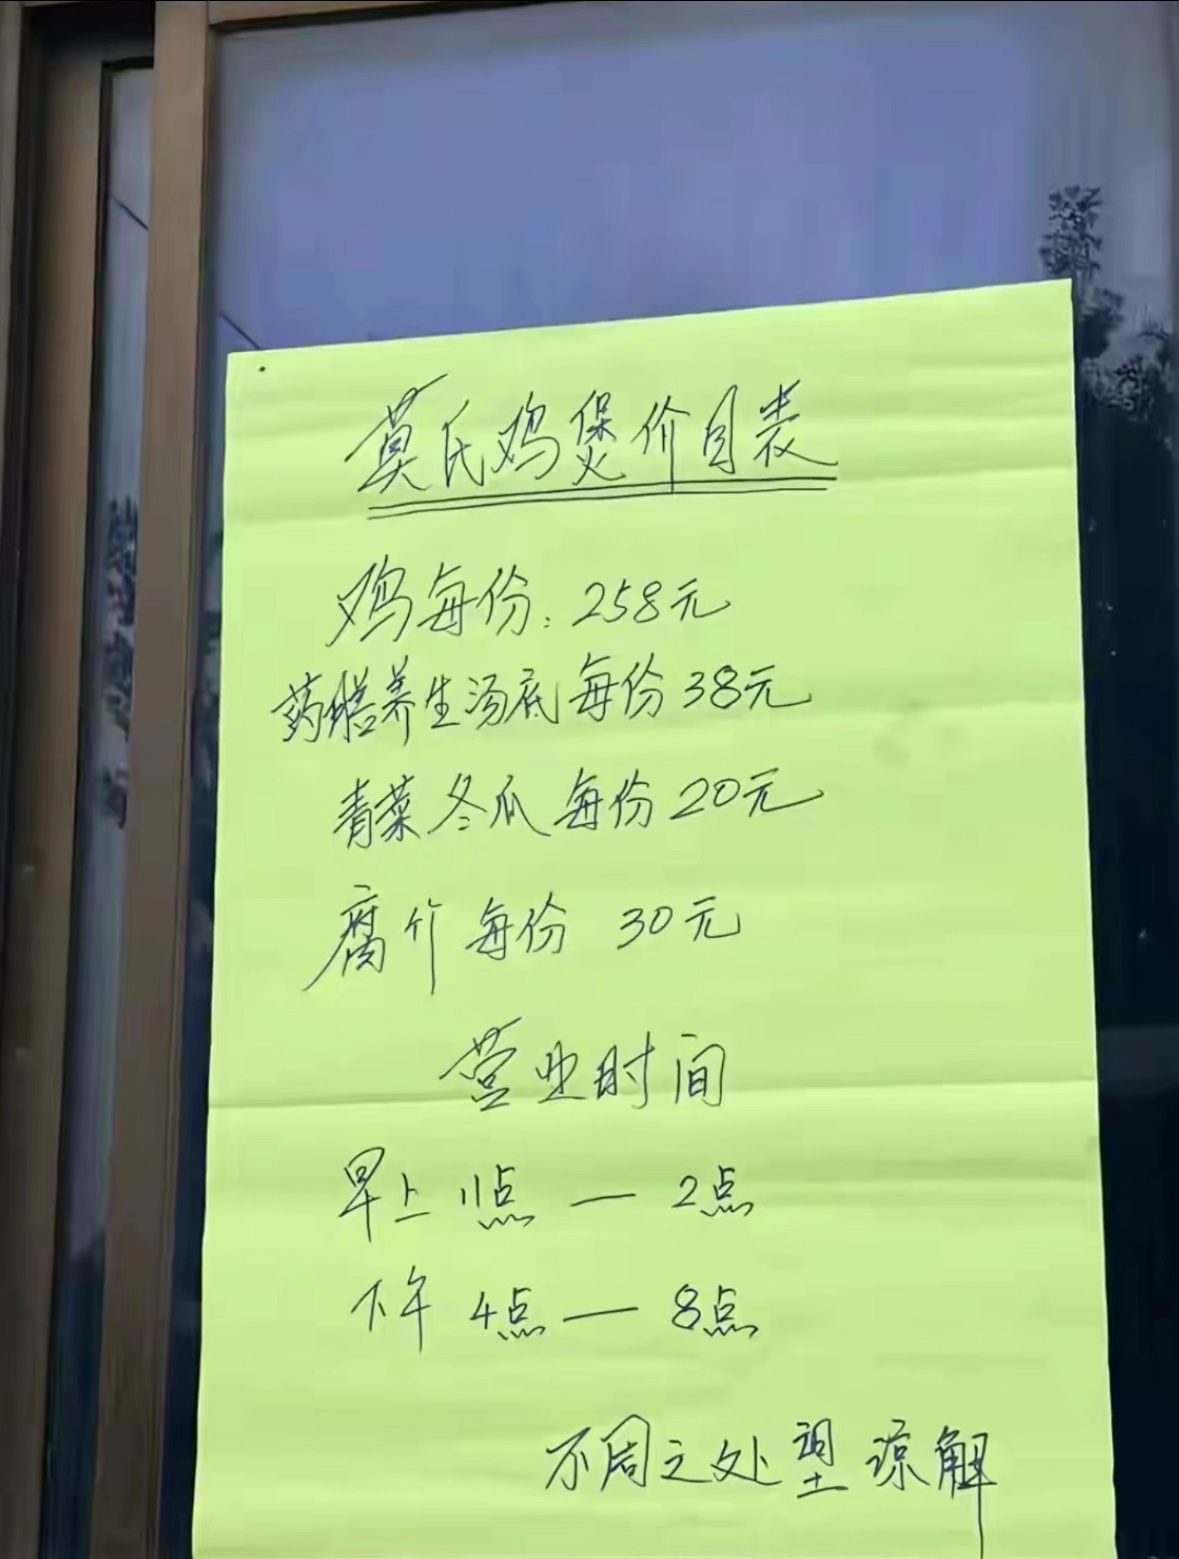 莫氏鸡煲价目表
鸡每份:258元
药膳养生汤底每份38元
青菜冬瓜每份20元
腐竹每份 30元
营业时间
早上11点 — 2点
下午 4点 — 8点
不周之处望谅解